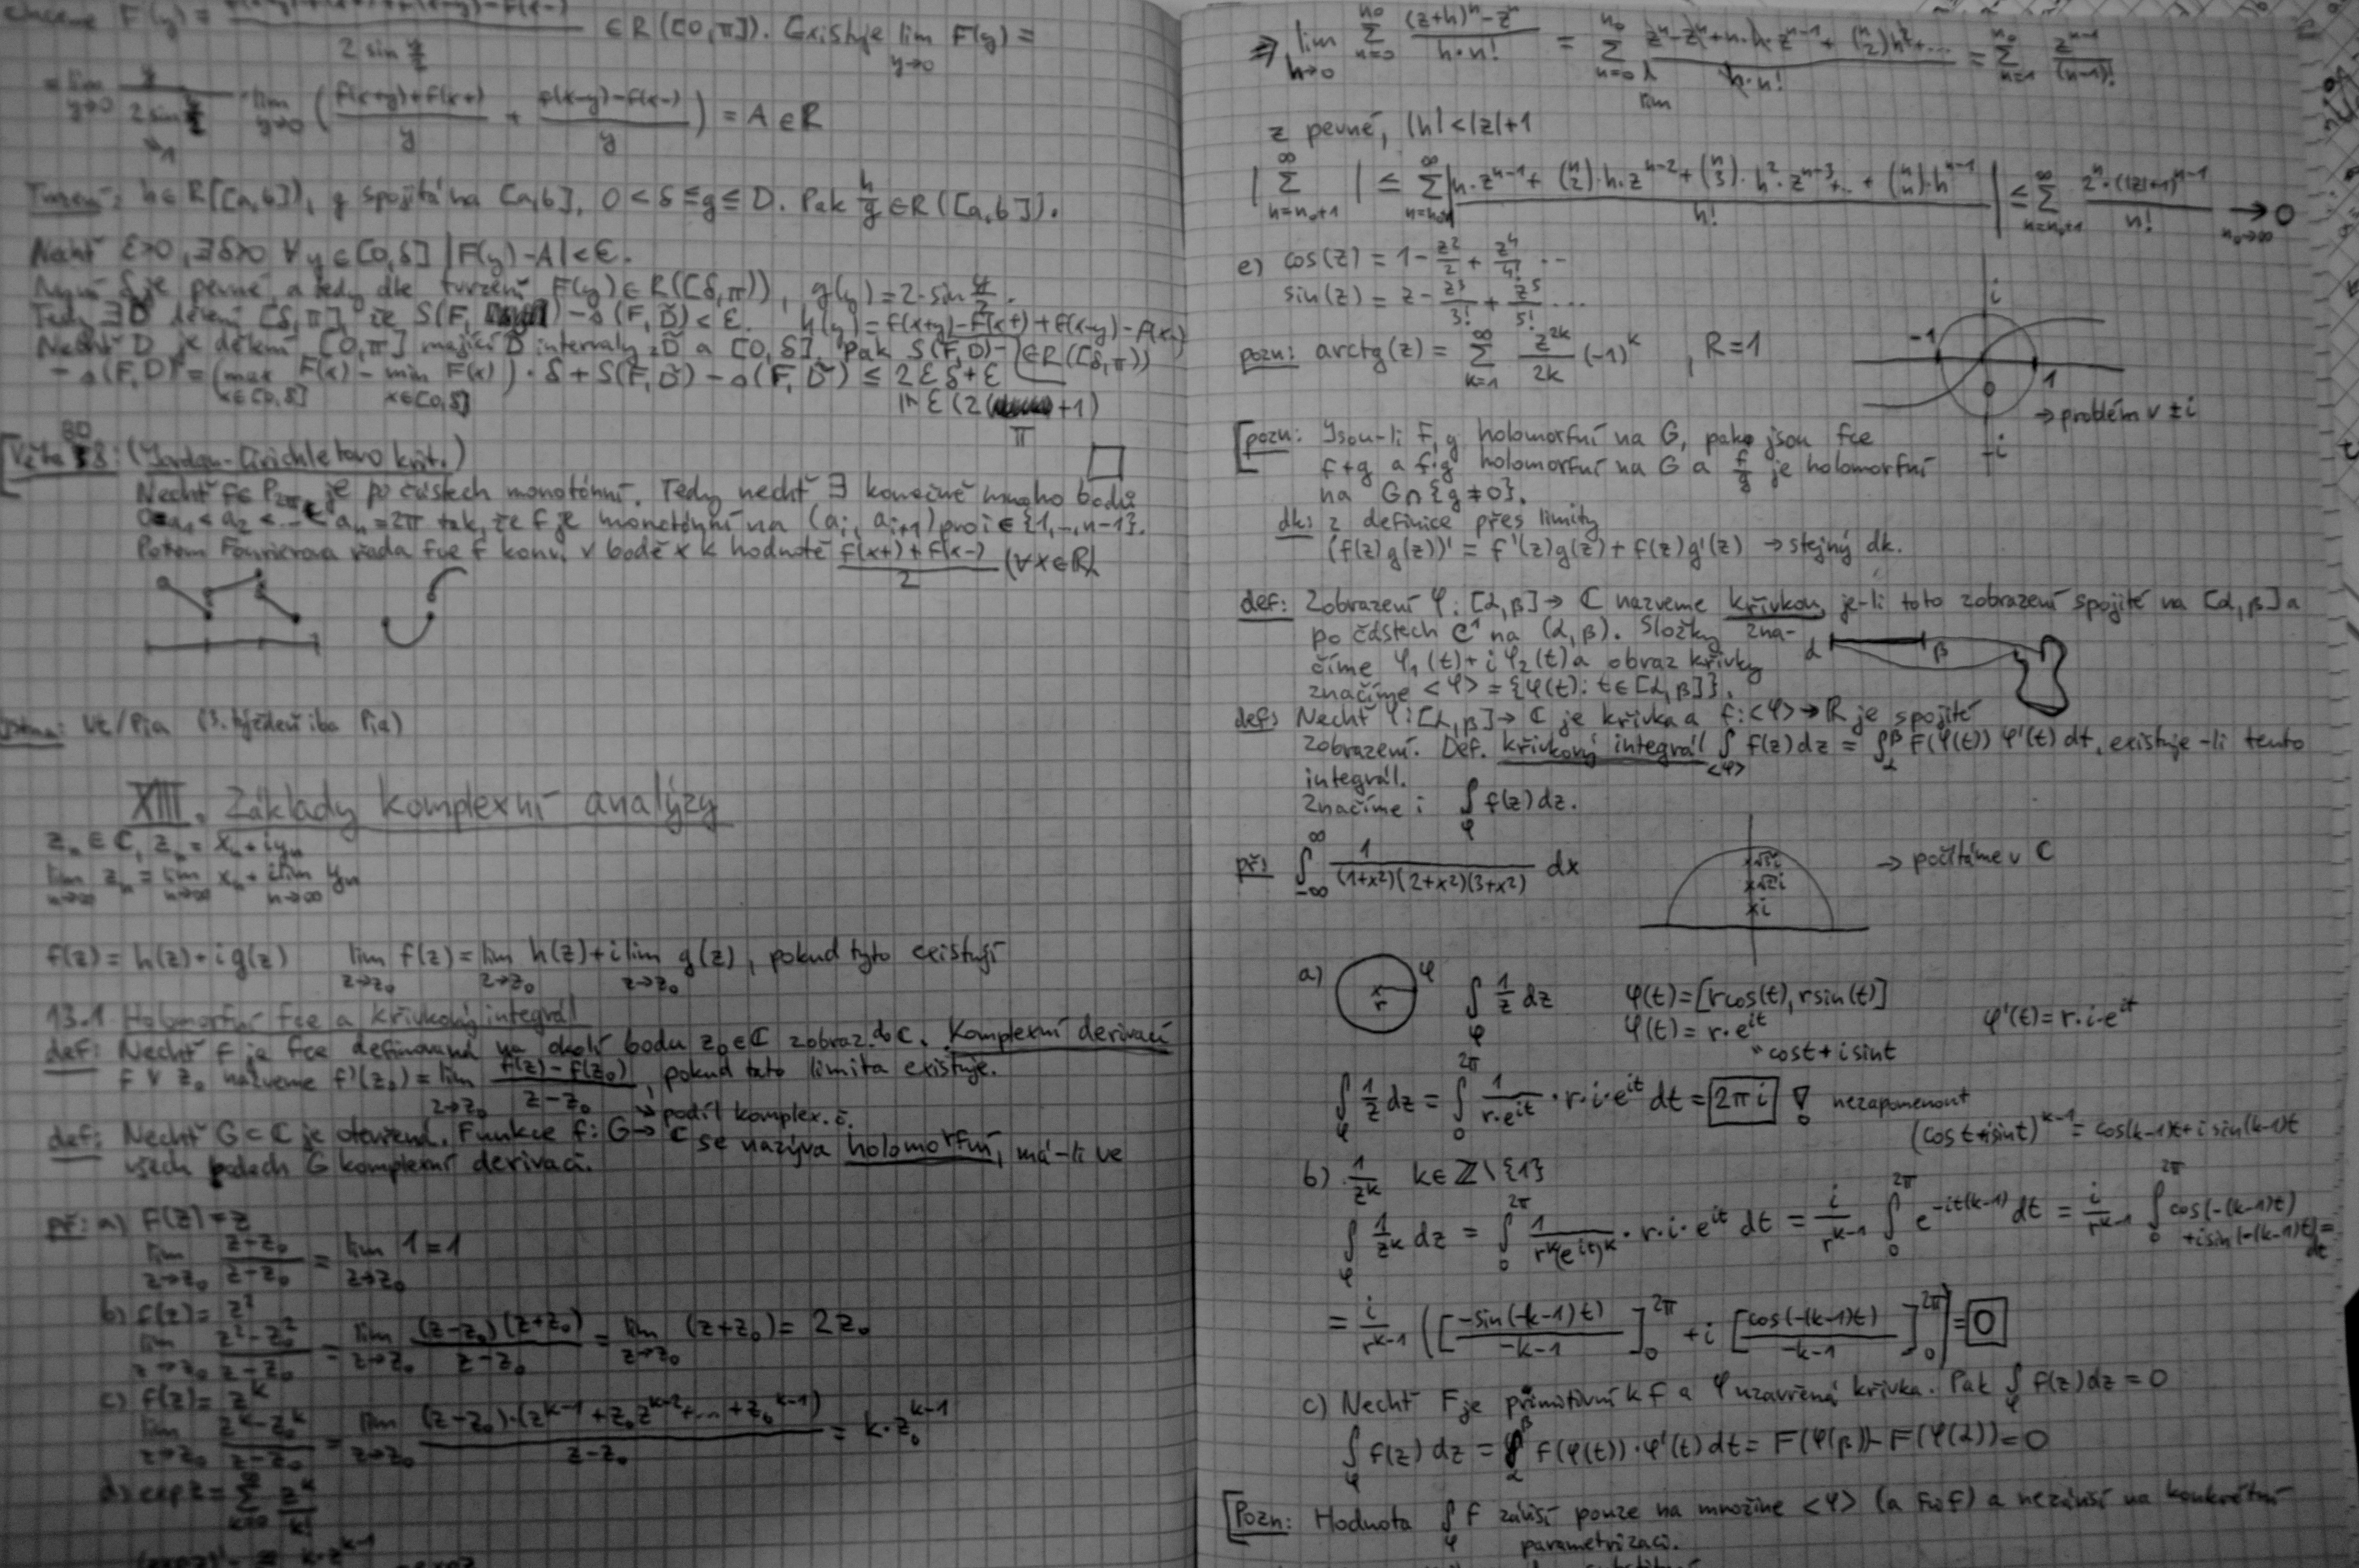 F(y) = ∈ R([0,π]). Existuje lim F(y) =
2 sin y/2 y→0
= lim y→0 y / 2 sin y/2 · lim y→0 ( f(x+y)+f(x+) / y + f(x-y)-f(x-) / y ) = A ∈ R
Tvrzení: h ∈ R([a,b]), g spojitá na [a,b], 0 < δ ≤ g ≤ D. Pak h/g ∈ R([a,b]).
Nechť ε>0, ∃δ>0 ∀y ∈ [0,δ] |F(y)-A| < ε.
Nyní δ je pevné, a tedy dle tvrzení F(y) ∈ R([δ,π]), g(y) = 2·sin y/2.
Tedy ∃D̃ dělení [δ,π], že S(F, ) - s(F,D̃) < ε. h(y) = f(x+y)-f(x+)+f(x-y)-f(x-)
Nechť D je dělení [0,π] mající D̃ intervaly z D̃ a [0,δ]. Pak S(F,D)- ∈ R([δ,π])
- s(F,D) = (max x∈[0,δ] F(x) - min x∈[0,δ] F(x)) · δ + S(F,D̃) - s(F,D̃) ≤ 2εδ+ε
ε(2 π +1)
Věta 80: (Jordan-Dirichletovo krit.)
Nechť f ∈ P2π je po částech monotónní. Tedy nechť ∃ konečně mnoho bodů
a1 < a2 < ... < an = 2π tak, že f je monotónní na (ai, ai+1) pro i ∈ {1,..,n-1}.
Potom Fourierova řada fce f konv. v bodě x k hodnotě f(x+)+f(x-) / 2 (∀x∈R).
XIII. Základy komplexní analýzy
zn ∈ C, zn = xn + iyn
lim n→∞ zn = lim n→∞ xn + i lim n→∞ yn
f(z) = h(z) + i g(z) lim z→z0 f(z) = lim z→z0 h(z) + i lim z→z0 g(z), pokud tyto existují
13.1 Holomorfní fce a křivkový integrál
def: Nechť f je fce definovaná na okolí bodu z0 ∈ C zobraz. do C. Komplexní derivací
f v z0 nazveme f'(z0) = lim z→z0 f(z)-f(z0) / z-z0, pokud tato limita existuje.
↘ podíl komplex. č.
def: Nechť G ⊂ C je otevřená. Funkce f: G → C se nazývá holomorfní, má-li ve
všech bodech G komplexní derivaci.
př: a) f(z) = z
lim z→z0 z-z0 / z-z0 = lim z→z0 1 = 1
b) f(z) = z²
lim z→z0 z²-z0² / z-z0 = lim z→z0 (z-z0)(z+z0) / z-z0 = lim z→z0 (z+z0) = 2z0
c) f(z) = z^k
lim z→z0 z^k-z0^k / z-z0 = lim z→z0 (z-z0)·(z^(k-1)+z0z^(k-2)+...+z0^(k-1)) / z-z0 = k·z0^(k-1)
d) exp z = ∑ k=0 ∞ z^k / k!
⇒ lim h→0 ∑ n=0 n0 (z+h)^n - z^n / h·n! = ∑ n=0 n0 lim z^n - z^n + n·h·z^(n-1) + (n 2)h²+... / h·n! = ∑ n=1 n0 z^(n-1) / (n-1)!
z pevné, |h| < |z|+1
| ∑ n=n0+1 ∞ | ≤ ∑ ∞ | n·z^(n-1) + (n 2)·h·z^(n-2) + (n 3)·h²·z^(n-3)+..+ (n n)·h^(n-1) / n! | ≤ ∑ n=n0+1 ∞ 2^n·(|z|+1)^(n-1) / n! → n0→∞ 0
e) cos(z) = 1 - z²/2 + z⁴/4! ...
sin(z) = z - z³/3! + z⁵/5! ...
i
-1
0
1
-i
pozn: arctg(z) = ∑ k=1 ∞ z^(2k) / 2k (-1)^k, R=1
→ problém v ±i
pozn: Jsou-li f,g holomorfní na G, pak jsou fce
f+g a f·g holomorfní na G a f/g je holomorfní
na G∩{g≠0}.
dk: z definice přes limity
(f(z)g(z))' = f'(z)g(z) + f(z)g'(z) → stejný dk.
def: Zobrazení φ: [α,β] → C nazveme křivkou, je-li toto zobrazení spojité na [α,β] a
po částech C¹ na (α,β). Složky zna-
číme φ1(t)+iφ2(t) a obraz křivky
značíme <φ> = {φ(t): t∈[α,β]}.
α β
def: Nechť φ:[α,β] → C je křivka a f:<φ> → R je spojité
zobrazení. Def. křivkový integrál ∫<φ> f(z)dz = ∫α β f(φ(t)) φ'(t) dt, existuje-li tento
integrál.
Značíme: ∫φ f(z)dz.
př: ∫ -∞ ∞ 1 / (1+x²)(2+x²)(3+x²) dx
√3i
√2i
i
→ počítáme v C
a) r φ ∫φ 1/z dz φ(t) = [rcos(t), rsin(t)]
φ(t) = r·e^(it) φ'(t) = r·i·e^(it)
" cost + i sint
∫φ 1/z dz = ∫0 2π 1 / r·e^(it) · r·i·e^(it) dt = 2πi nezapomenout
(cost+isint)^(k-1) = cos(k-1)t + i sin(k-1)t
b) 1/z^k k ∈ Z\{1}
∫φ 1/z^k dz = ∫0 2π 1 / r^k(e^(it))^k · r·i·e^(it) dt = i / r^(k-1) ∫0 2π e^(-it(k-1)) dt = i / r^(k-1) ∫0 2π cos(-(k-1)t) + i sin(-(k-1)t) dt =
= i / r^(k-1) ([ -sin(-k-1)t) / -k-1 ]0 2π + i [ cos(-(k-1)t) / -k-1 ]0 2π) = 0
c) Nechť F je primitivní k f a φ uzavřená křivka. Pak ∫φ f(z)dz = 0
∫φ f(z) dz = ∫α β f(φ(t))·φ'(t) dt = F(φ(β)) - F(φ(α)) = 0
Pozn: Hodnota ∫φ f závisí pouze na množině <φ> (a f) a nezávisí na konkrétní
parametrizaci.